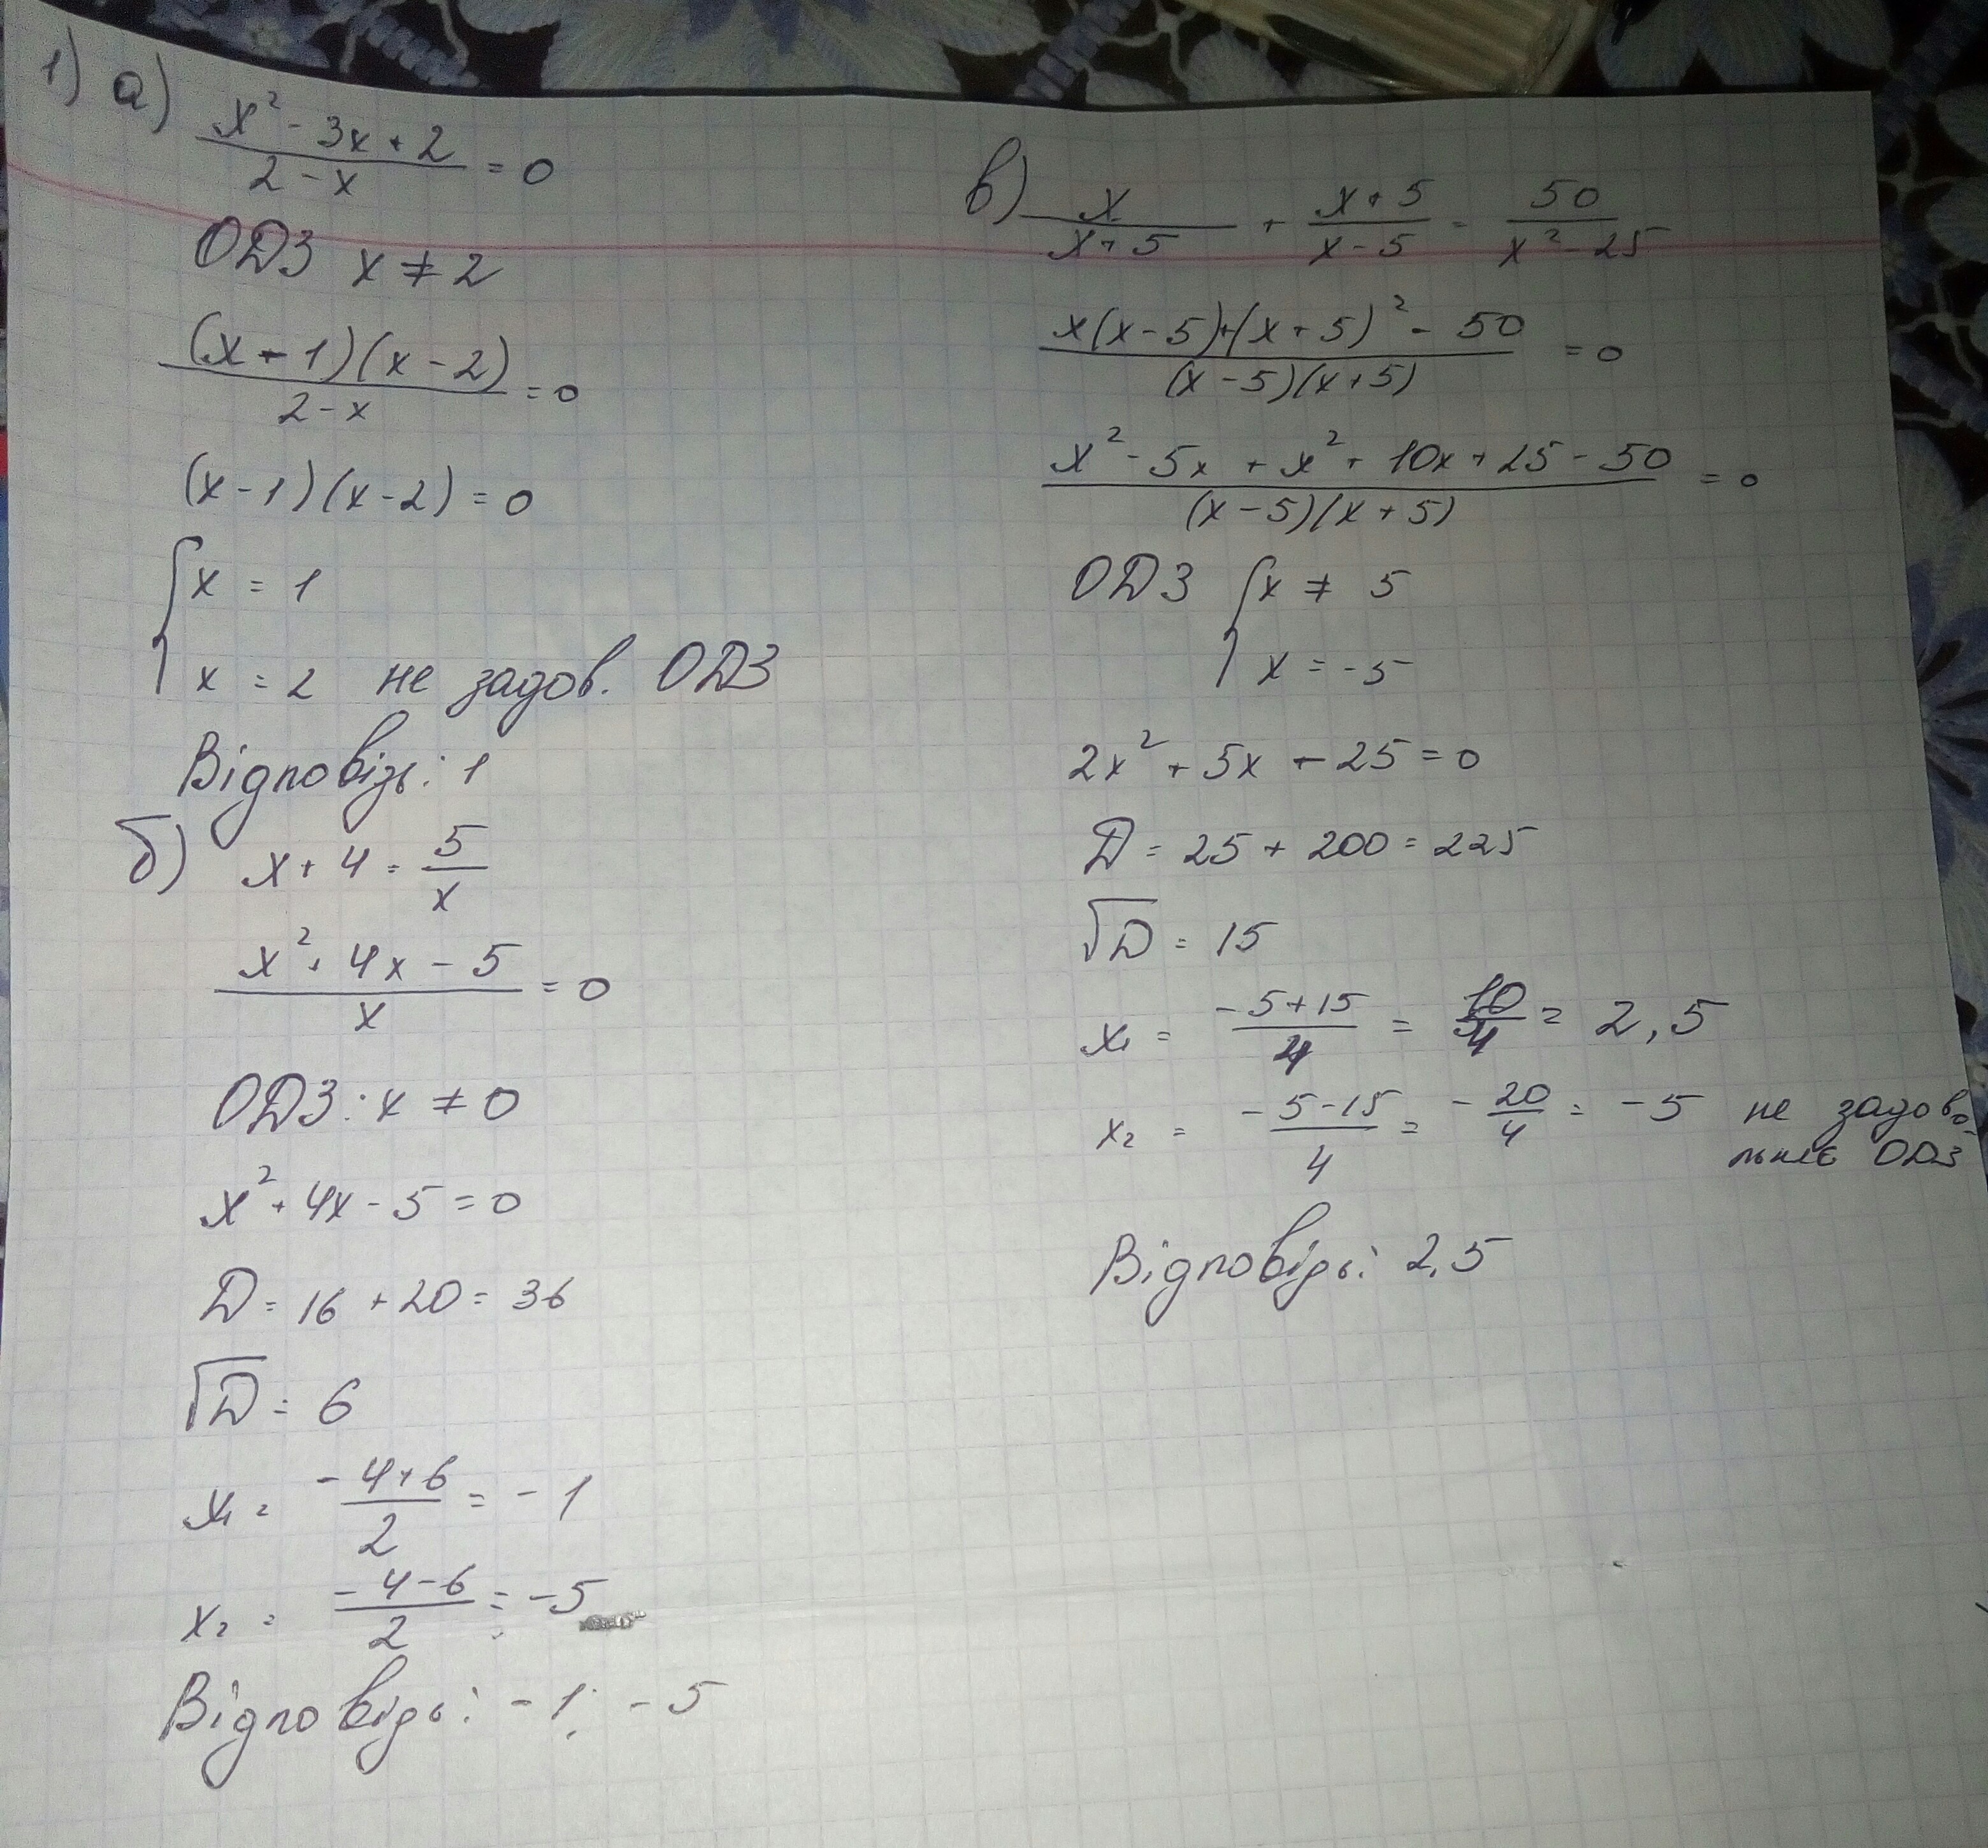 1) а) (x² - 3x + 2)/(2 - x) = 0
ОДЗ x ≠ 2
(x - 1)(x - 2)/(2 - x) = 0
(x - 1)(x - 2) = 0
{ x = 1
x = 2 не задов. ОДЗ
Відповідь: 1
б) x + 4 = 5/x
(x² + 4x - 5)/x = 0
ОДЗ: x ≠ 0
x² + 4x - 5 = 0
D = 16 + 20 = 36
√D = 6
x₁ = (-4+6)/2 = -1
x₂ = (-4-6)/2 = -5
Відповідь: -1; -5
в) x/(x+5) + (x+5)/(x-5) = 50/(x²-25)
(x(x-5)+(x+5)² - 50)/((x-5)(x+5)) = 0
(x² - 5x + x² + 10x + 25 - 50)/((x-5)(x+5)) = 0
ОДЗ { x ≠ 5
x = -5
2x² + 5x - 25 = 0
D = 25 + 200 = 225
√D = 15
x₁ = (-5+15)/4 = 10/4 = 2,5
x₂ = (-5-15)/4 = -20/4 = -5 не задово-
льняє ОДЗ
Відповідь: 2,5